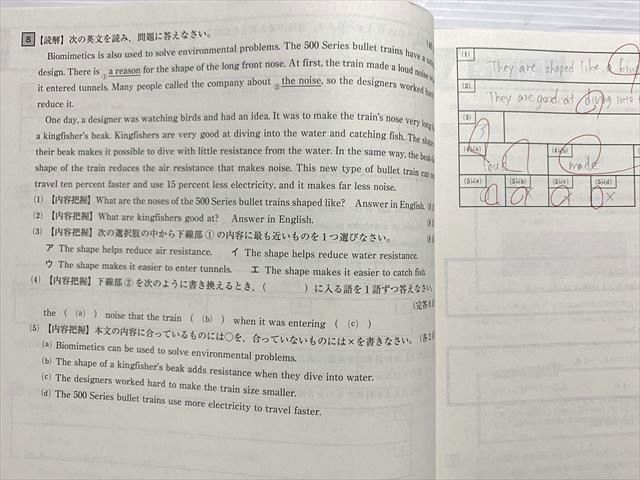 8 【読解】次の英文を読み，問題に答えなさい。
Biomimetics is also used to solve environmental problems. The 500 Series bullet trains have a
design. There is ①a reason for the shape of the long front nose. At first, the train made a loud noise
it entered tunnels. Many people called the company about ②the noise, so the designers worked hard
reduce it.
One day, a designer was watching birds and had an idea. It was to make the train's nose very long
a kingfisher's beak. Kingfishers are very good at diving into the water and catching fish. The shape
their beak makes it possible to dive with little resistance from the water. In the same way, the beak
shape of the train reduces the air resistance that makes noise. This new type of bullet train can
travel ten percent faster and use 15 percent less electricity, and it makes far less noise.
(1) 【内容把握】What are the noses of the 500 Series bullet trains shaped like? Answer in English.
(2) 【内容把握】What are kingfishers good at? Answer in English.
(3) 【内容把握】次の選択肢の中から下線部①の内容に最も近いものを1つ選びなさい。
ア The shape helps reduce air resistance. イ The shape helps reduce water resistance.
ウ The shape makes it easier to enter tunnels. エ The shape makes it easier to catch fish.
(4) 【内容把握】下線部②を次のように書き換えるとき，( )に入る語を1語ずつ答えなさい。
(完答8点
the ( (a) ) noise that the train ( (b) ) when it was entering ( (c) )
(5) 【内容把握】本文の内容に合っているものには○を，合っていないものには×を書きなさい。
(a) Biomimetics can be used to solve environmental problems.
(b) The shape of a kingfisher's beak adds resistance when they dive into water.
(c) The designers worked hard to make the train size smaller.
(d) The 500 Series bullet trains use more electricity to travel faster.
(1)
They are shaped like a
(2)
They are good at diving into
(3)
(4)(a) (4)(b)
made
(5)(a) (5)(b) (5)(c) (5)(d)